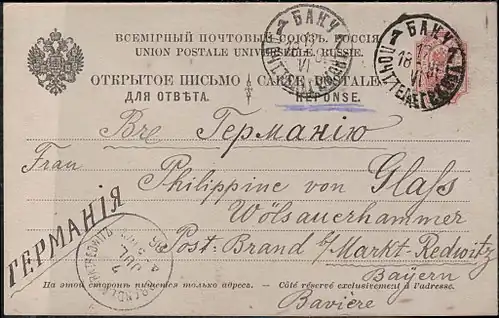 ВСЕМІРНЫЙ ПОЧТОВЫЙ СОЮЗЪ. РОССІЯ
UNION POSTALE UNIVERSELLE. RUSSIE.
ОТКРЫТОЕ ПИСЬМО – CARTE POSTALE
ДЛЯ ОТВѢТА. RÉPONSE.
БАКУ
БАКУ
18
Германію
Frau Philippine von Glaß
Wölsauerhammer
Post-Brand b/Markt-Redwitz
Bayern
Bavière
ГЕРМАНІЯ
JUL
На этой сторонѣ пишется только адресъ. – Côté réservé exclusivement à l'adresse.